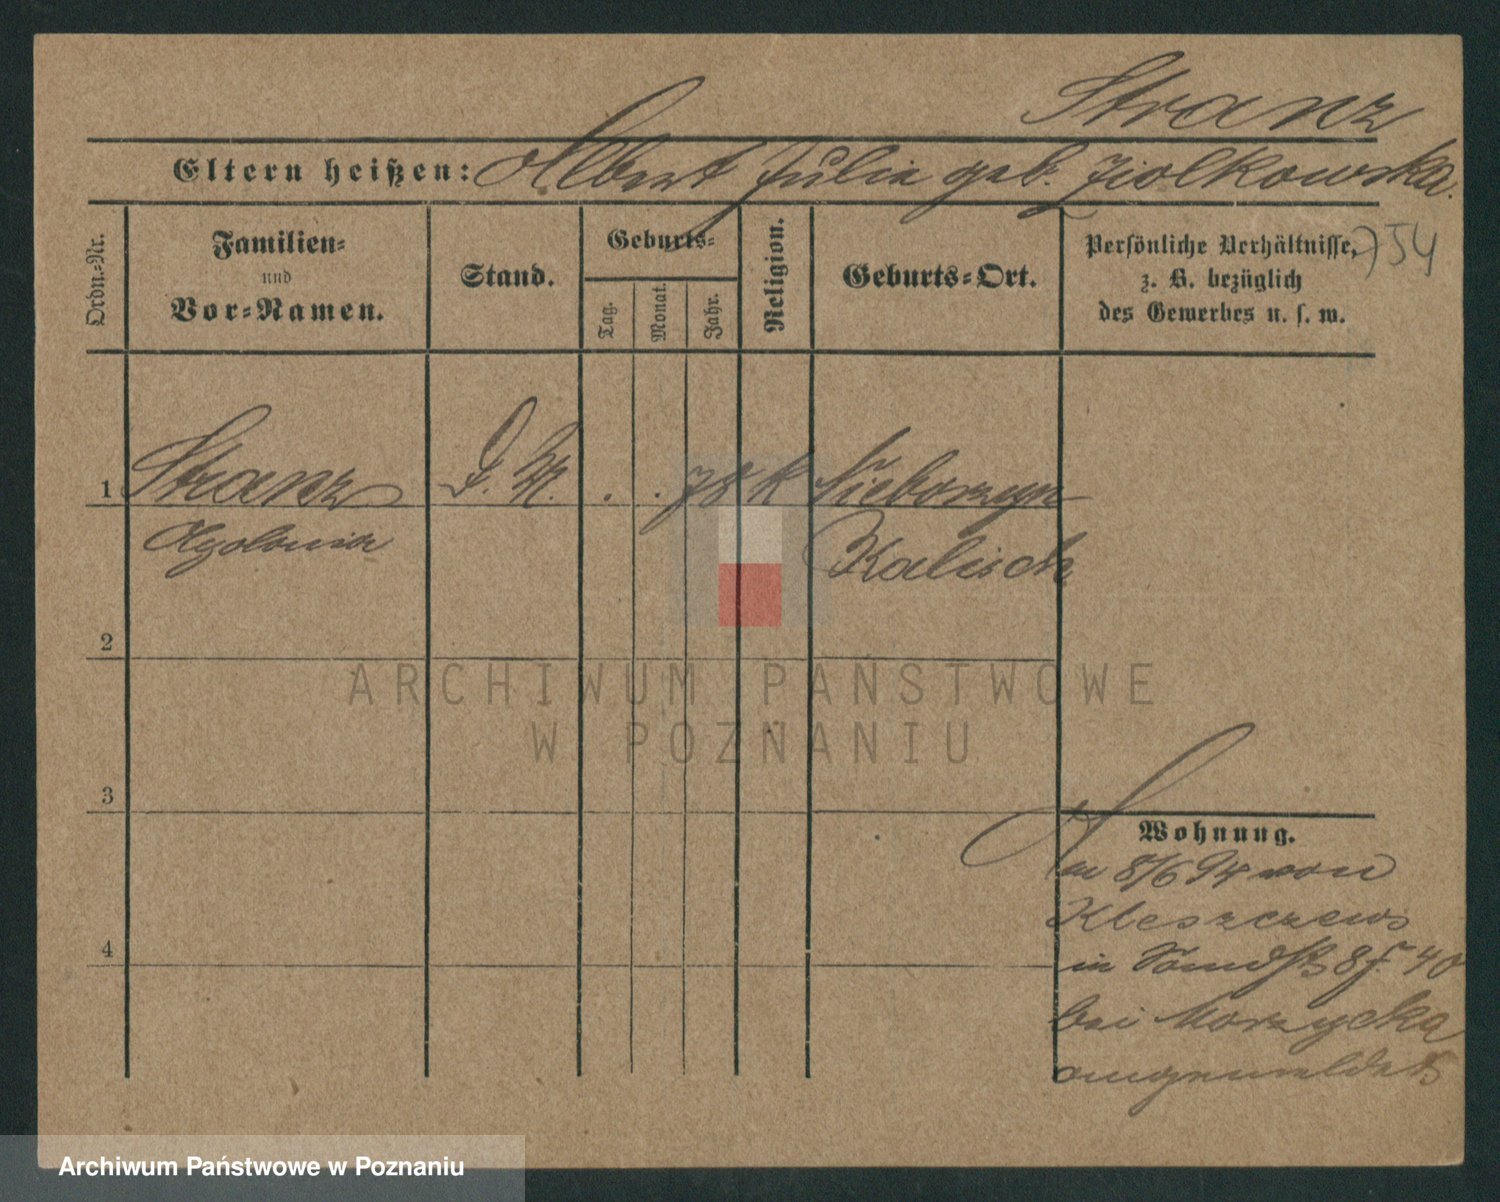 Stranz
Eltern heißen: Albert Julia geb. Ziolkowska.
754
Ordn.-Nr.
Familien-
und
Vor-Namen.
Stand.
Geburts-
Tag.
Monat.
Jahr.
Religion.
Geburts-Ort.
Persönliche Verhältnisse,
z. B. bezüglich
des Gewerbes u. s. w.
1 Stranz D. M. . . 78 k
Apolonia Kalisch
2
ARCHIWUM PAŃSTWOWE
W POZNANIU
3
Wohnung.
8/6 94 von
Kleszczewo
in 40
bei Morzycka
angemeldet
4
Archiwum Państwowe w Poznaniu